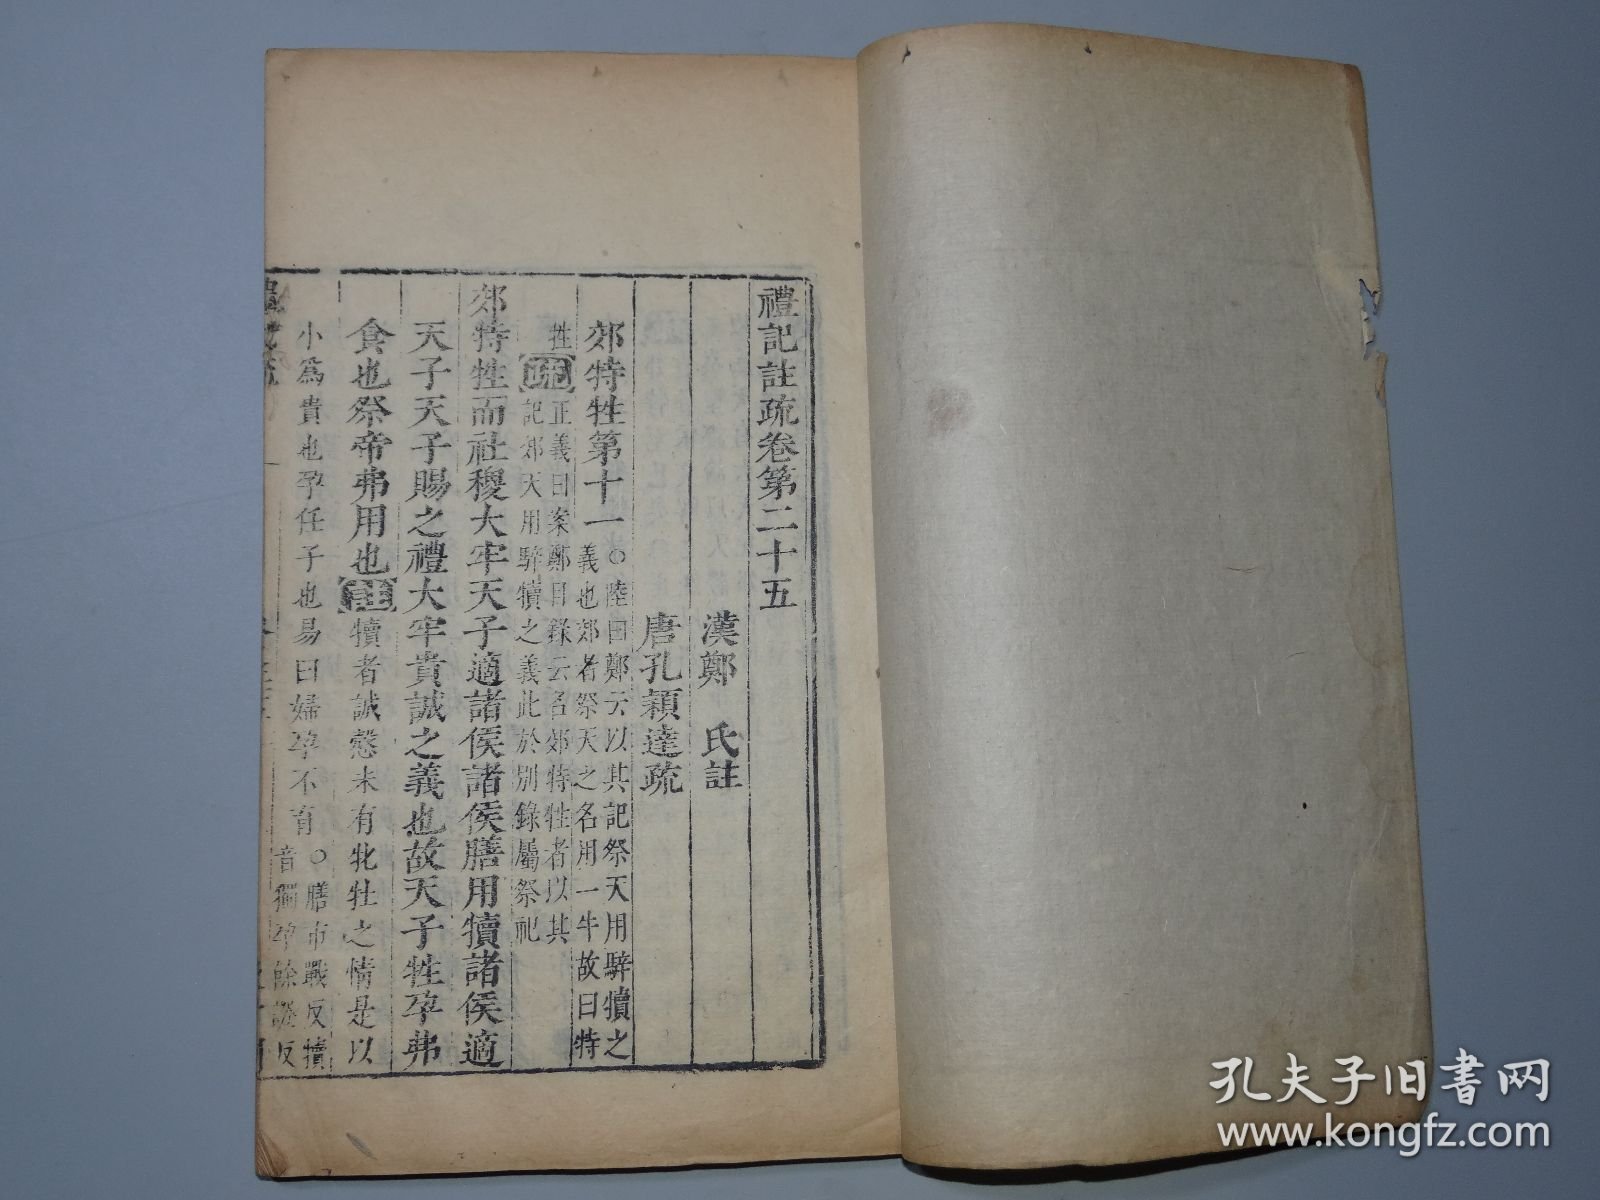 禮記註疏卷第二十五
漢鄭氏註
唐孔穎達疏
郊特牲第十一○陸曰鄭云以其記祭天用騂犢之
義也郊者祭天之名用一牛故曰特
牲疏正義曰案鄭目錄云名郊特牲者以其
記郊天用騂犢之義此於別錄屬祭祀
郊特牲而社稷大牢天子適諸侯諸侯膳用犢諸侯適
天子天子賜之禮大牢貴誠之義也故天子牲孕弗
食也祭帝弗用也註犢者誠慤未有牝牡之情是以
小為貴也孕任子也易曰婦孕不育○膳市戰反犢
音獨孕餘證反
孔夫子旧書网
www.kongfz.com